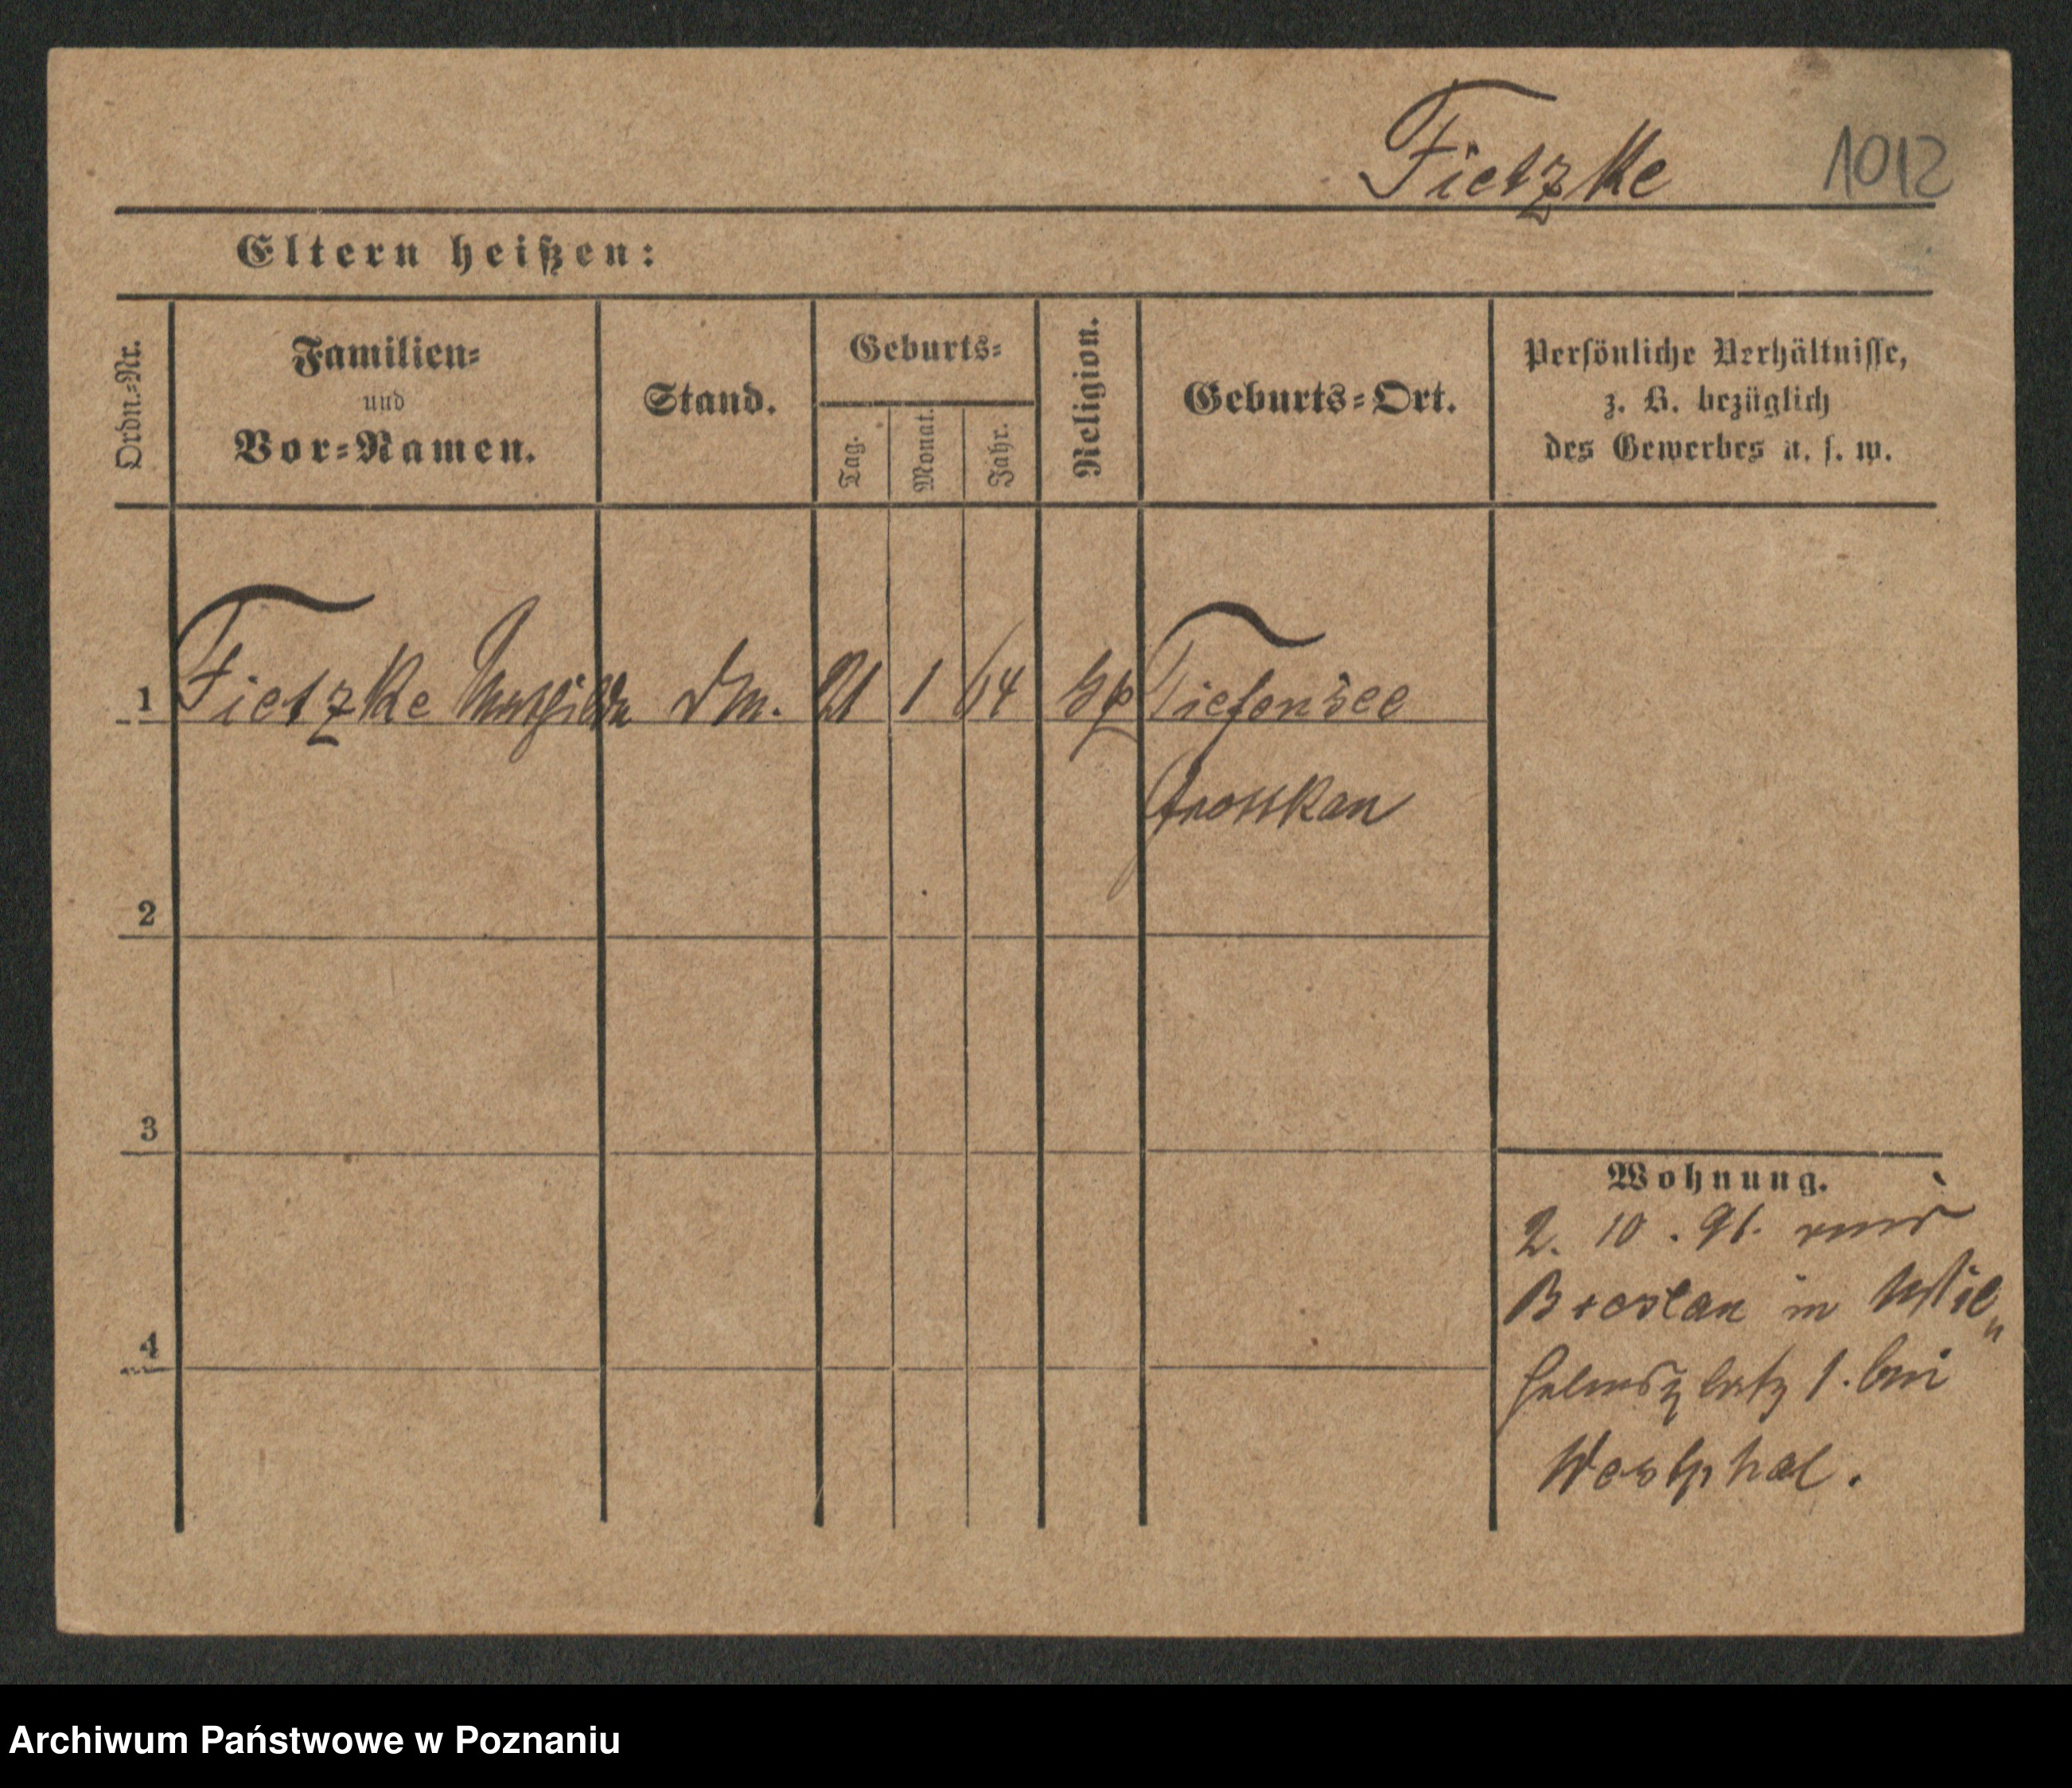 Fietzke 1012
Eltern heißen:
Ordn.=Nr.
Familien=
und
Vor=Namen.
Stand.
Geburts=
Tag.
Monat.
Jahr.
Religion.
Geburts=Ort.
Persönliche Verhältnisse,
z. B. bezüglich
des Gewerbes u. s. w.
1 Fietzke Mathilde 21 1 64 Tiefensee
Grottkau
2
3
4
Wohnung.
2. 10. 91. aus
Breslau in Wil„
helmsplatz 1. bei
Westphal.
Archiwum Państwowe w Poznaniu